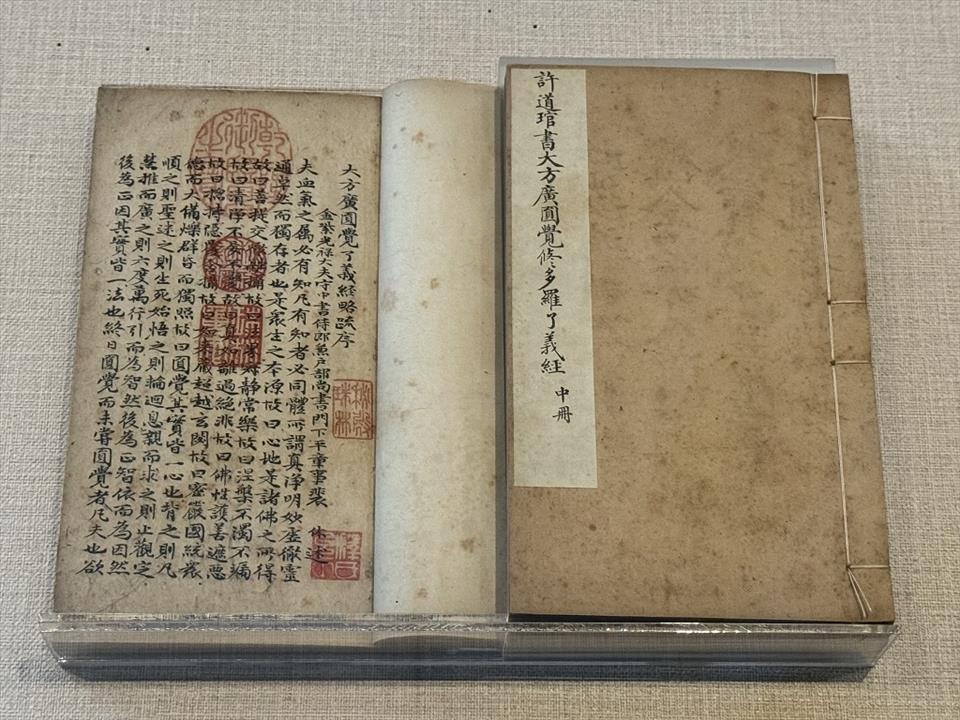 許道琯書大方廣圓覺修多羅了義經
中冊
大方廣圓覺了義經略疏序
金紫光祿大夫守中書侍郎兼戶部尚書門下平章事裴 休述
夫血氣之屬必有知凡有知者必同體所謂真淨明妙虛徹靈
通卓然而獨存者也是衆生之本源故曰心地是諸佛之所得
故曰菩提交徹融攝故曰法界寂靜常樂故曰涅槃不濁不漏
故曰清淨不妄不變故曰真如離過絕非故曰佛性護善遮惡
故曰總持隱覆含攝故曰如來藏超越玄閟故曰密嚴國統衆
德而大備爍群昏而獨照故曰圓覺其實皆一心也背之則凡
順之則聖迷之則生死始悟之則輪迴息親而求之則止觀定
慧推而廣之則六度萬行引而為智然後為正智依而為因然
後為正因其實皆一法也終日圓覺而未嘗圓覺者凡夫也欲
秘殿珠林